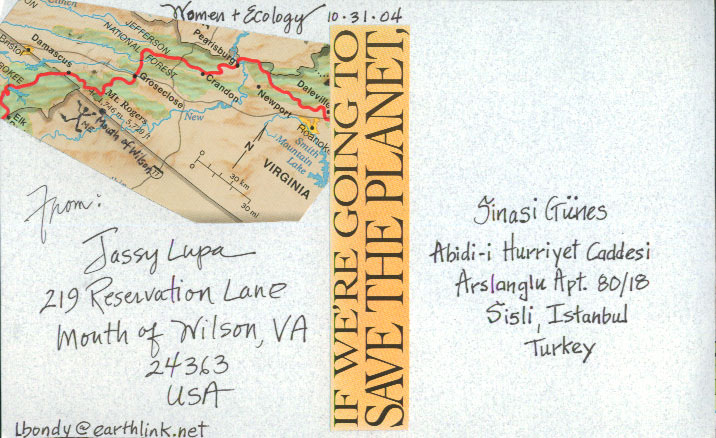 Women + Ecology 10.31.04
JEFFERSON
NATIONAL FOREST
Pearisburg
Bristol
Damascus
Groseclose
Crandon
Newport
Daleville
Roanoke
Mt. Rogers
1,746 m - 5,729 ft
New
Smith
Mountain
Lake
Elk
ME
Mouth of Wilson
N
VIRGINIA
30 km
30 mi
IF WE'RE GOING TO
SAVE THE PLANET,
From:
Jassy Lupa
219 Reservation Lane
Mouth of Wilson, VA
24363
USA
Lbondy@earthlink.net
Sinasi Günes
Abidi-i Hurriyet Caddesi
Arslanglu Apt. 80/18
Sisli, Istanbul
Turkey